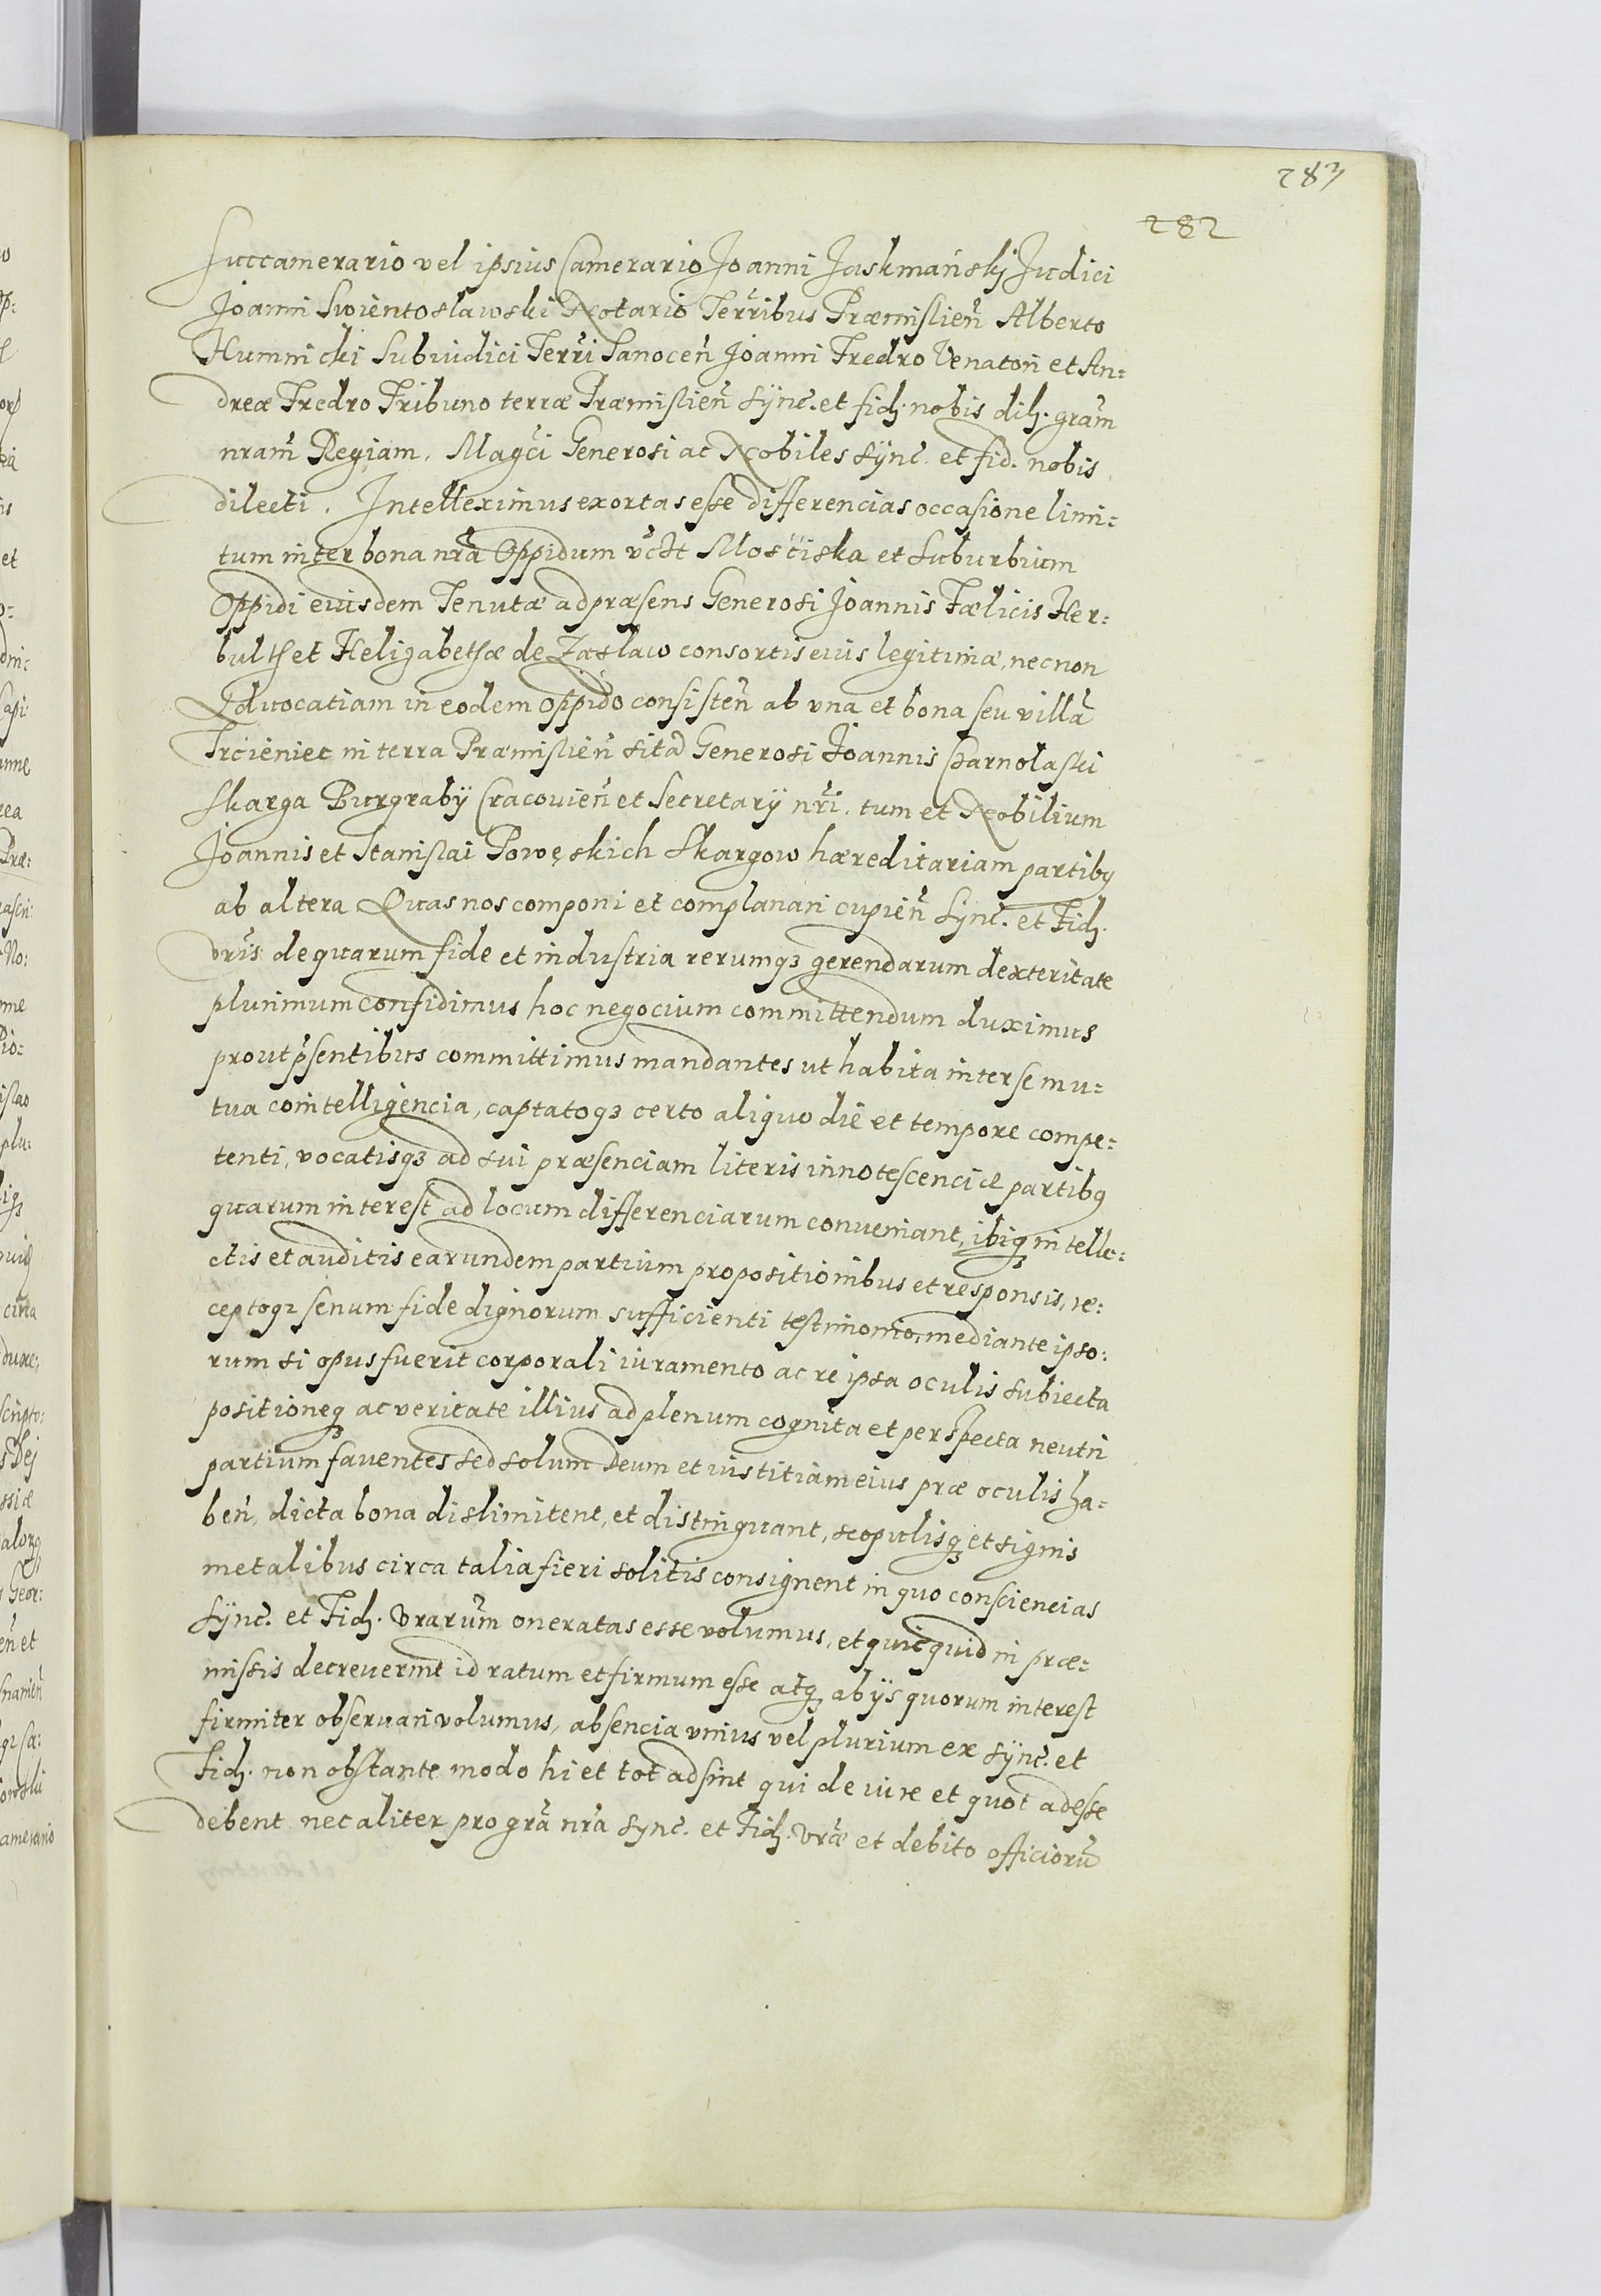 283
282
Succamerario vel ipsius Camerario Joanni Jaskmański Judici
Joanni Swientoslawski Notario Terribus Præmislien̄ Alberto
Humnicki Subiudici Terri Sanocen̄ Joanni Fredro Venatori et An=
dreæ Fredro Tribuno terræ Præmislien̄ sÿnc. et fid. nobis dil. gram̄
nram̄ Regiam. Magci Generosi ac Nobiles sÿnc. et fid. nobis
dilecti. Intelleximus exortas esse differencias occasione limi=
tum inter bona nrā Oppidum vclt Mosciska et suburbium
Oppidi eiusdem Tenutæ ad præsens Generosi Joannis Fælicis Her=
bulth et Helizabethæ de Zaslaw consortis eius legitimæ, necnon
Advocatiam in eodem oppido consisten̄ ab vna et bona seu villā
Trcieniec in terra Præmislien̄ sitā Generosi Joannis Charnolaski
Skarga Burgrabÿ Cracovien̄ et Secretarÿ nrī. tum et Nobilium
Joannis et Stanislai Powęskich Skargow hæreditariam partibq
ab altera Quas nos componi et complanari cupien̄ Sÿnc. et Fid.
vris de quarum fide et industria rerumqз gerendarum dexteritate
plurimum confidimus hoc negocium committendum duximus
prout pn̄sentibus committimus mandantes ut habita inter se mu=
tua cointelligencia, captatoqз certo aliquo die et tempore compe=
tenti, vocatisqз ad sui præsenciam literis innotescenciæ partibq
quarum interest ad locum differenciarum conveniant, ibiqз intelle=
ctis et auditis earundem partium propositionibus et responsis, re=
ceptoqз senum fide dignorum sufficienti testimonio, mediante ipso=
rum si opus fuerit corporali iuramento ac re ipsa oculis subiecta
positioneqз ac veritate illius ad plenum cognita et perspecta neutri
partium faventes sed solum Deum et iustitiam eius præ oculis ha=
ben̄, dicta bona dislimitent, et distinguant, scopulisqз et signis
metalibus circa talia fieri solitis consignent in quo consciencias
Sÿnc. et Fid. Vrarum̄ oneratas esse volumus, et quicquid in præ=
missis decreverint id ratum et firmum esse atqз ab ijs quorum interest
firmiter observari volumus, absencia vnius vel plurium ex sÿnc. et
Fid. non obstante modo hi et tot adsint qui de iure et quot adesse
debent nec aliter pro grā nrā Sync. et Fid. Vræ et debito officiorū